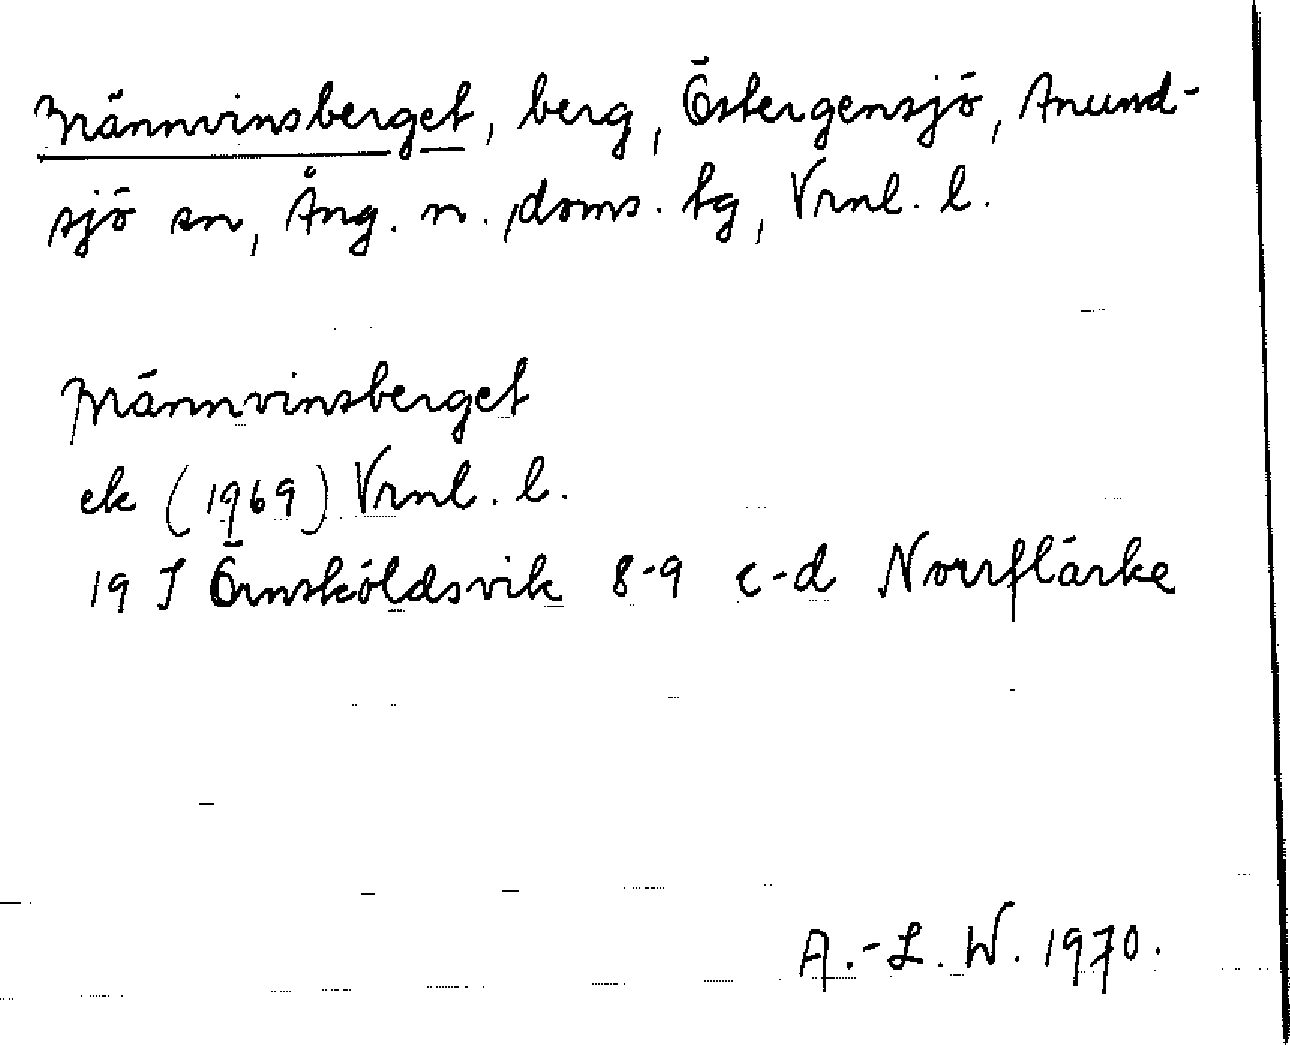 Männvinsberget, berg, Östergensjö, Anund-
sjö sn, Ång. n. doms. tg, Vrnl. l.
Männvinsberget
ek (1969) Vrnl. l.
19 J Örnsköldsvik 8-9 c-d Norrflärke
A.-L. W. 1970.